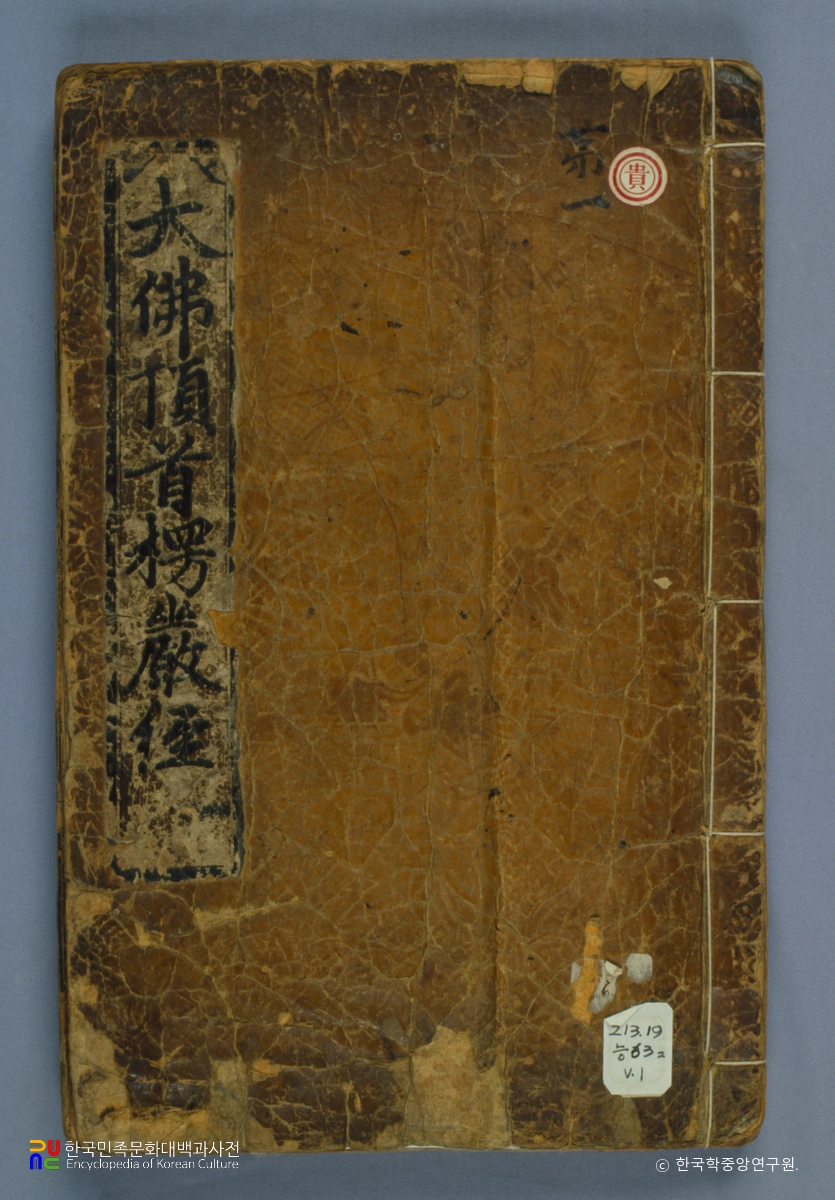 第一
貴
大佛頂首楞嚴經
213.19
능63ㄹ
v.1
한국민족문화대백과사전
Encyclopedia of Korean Culture
ⓒ 한국학중앙연구원.